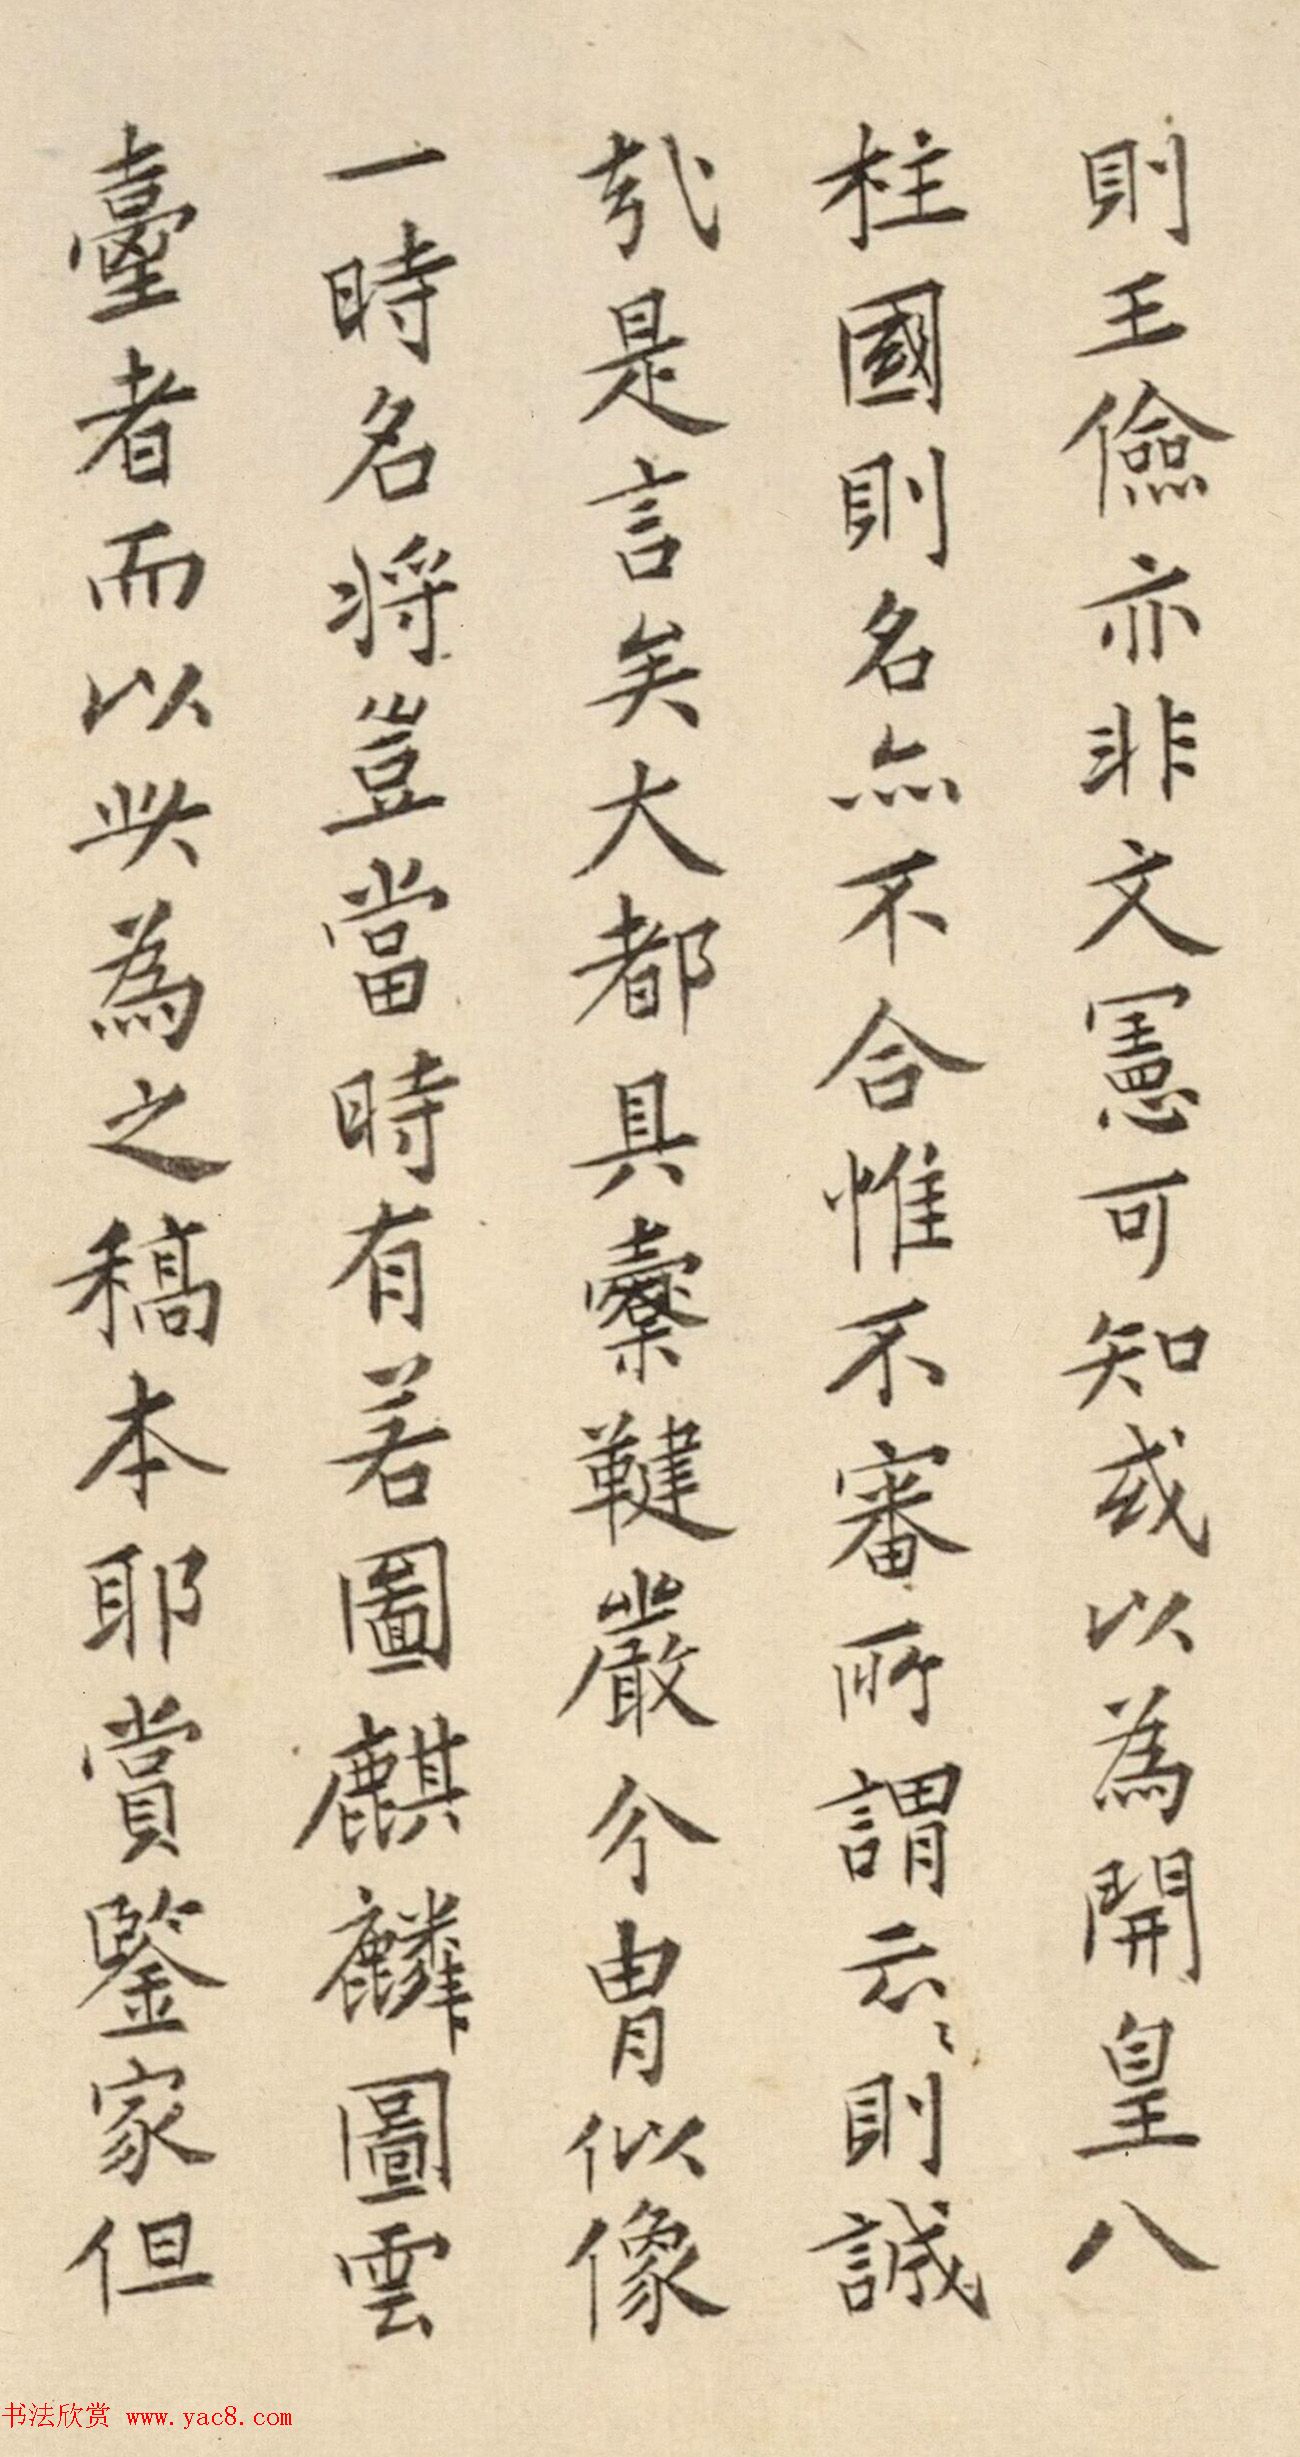 則王儉亦非文憲可知或以為開皇八
柱國則名亦不合惟不審所謂云〻則誠
哉是言矣大都具櫜鞬嚴介冑似像
一時名將豈當時有若圖麒麟圖雲
臺者而以此為之稿本耶賞鑒家但
书法欣赏 www.yac8.com